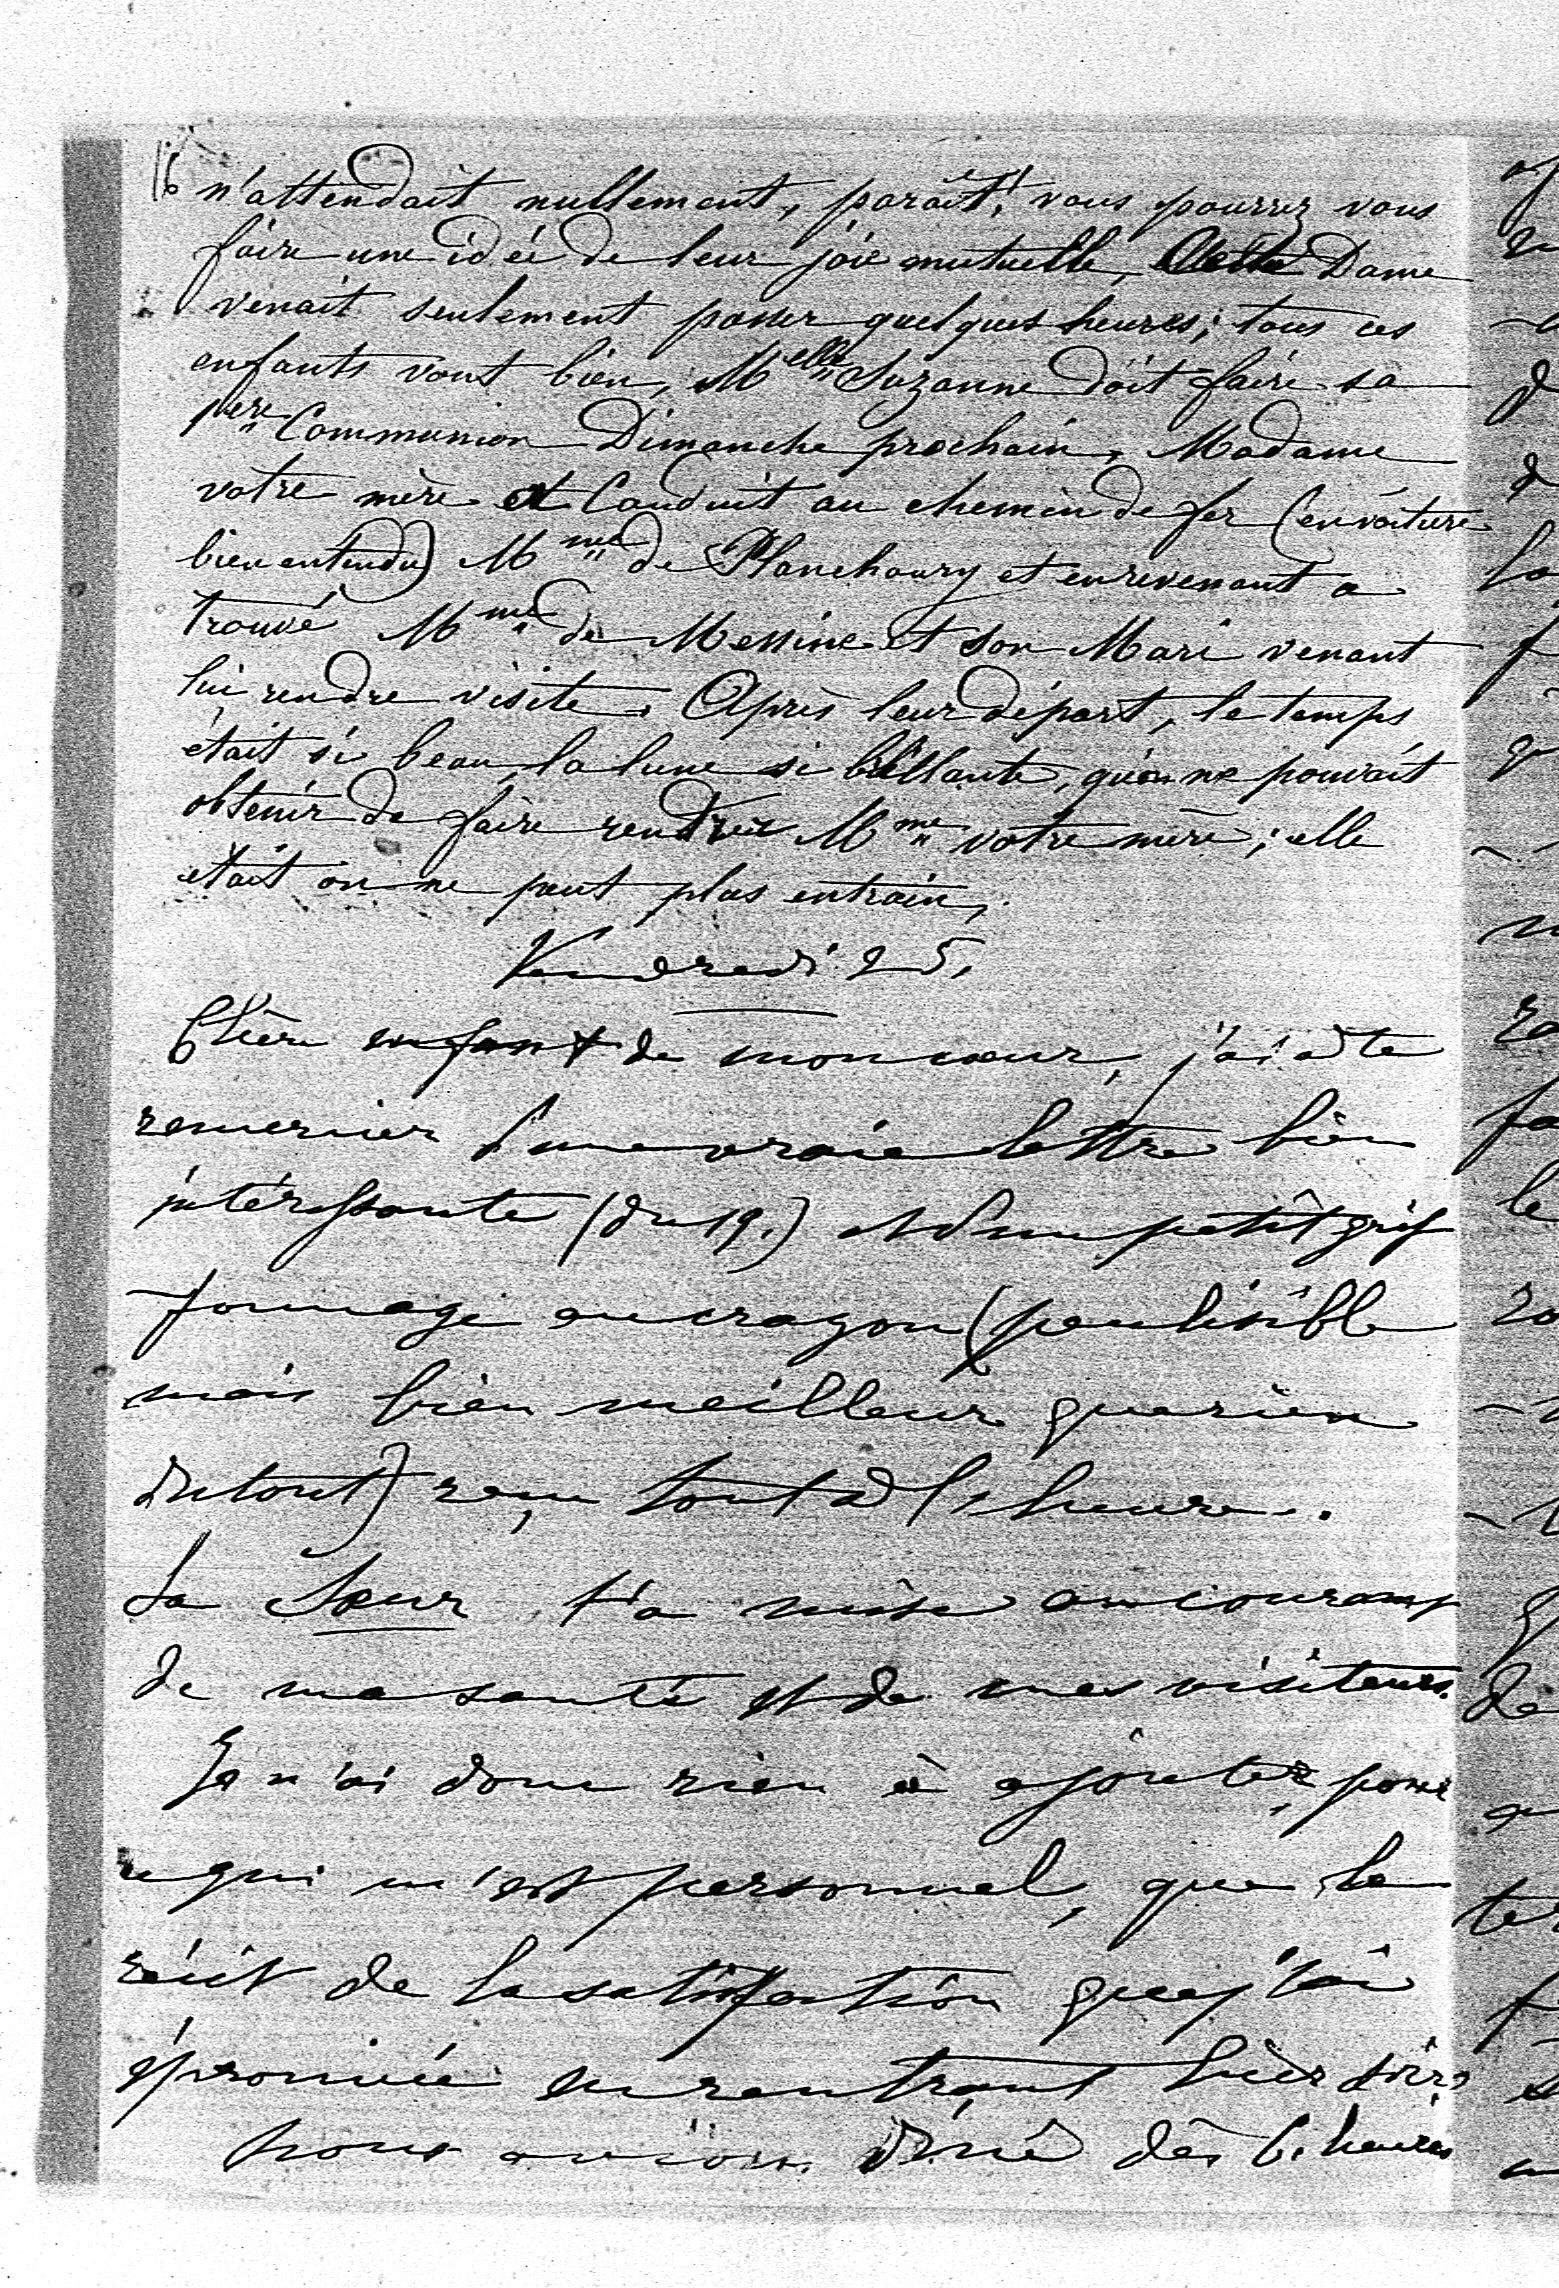 16 n'attendait nullement, paraît! vous pourrez vous
faire une idée de leur joie mutuelle, Cette Dame
venait seulement passer quelques heures; tous ces
enfants vont bien, Melle Suzanne doit faire sa
1ere Communion Dimanche prochain, Madame
votre mère a Conduit au chemin de fer (en voiture
bien entendu) Mme de Planchoury et en revenant a
trouvé Mme de Messine et son Mari venant
lui rendre visite. Après leur départ, le temps
était si beau, la lune si brillante, qu'on ne pouvait
obtenir de faire rentrer Mme votre mère; elle
était on ne peut plus entrain,
Vendredi 25.
Chère enfant de mon cœur, j'ai à te
remercier d'une vraie lettre bien
intéressante (du 19.) et d'un petit grif
fonnage au crayon (peu lisible
mais bien meilleur que rien
du tout) reçu tout à l'heure.
La Sœur t'a mise au courant
de ma santé et de mes visiteurs.
Je n'ai donc rien à ajouter, pour
ce qui m'est personnel, que le
récit de la satisfaction que j'ai
éprouvée en rentrant hier soir,
nous avions dîné dès 6. heures